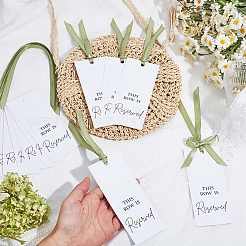 THIS
ROW IS
Reserved
THIS
ROW IS
Reserved
THIS
ROW IS
Reserved
THIS
ROW IS
Reserved